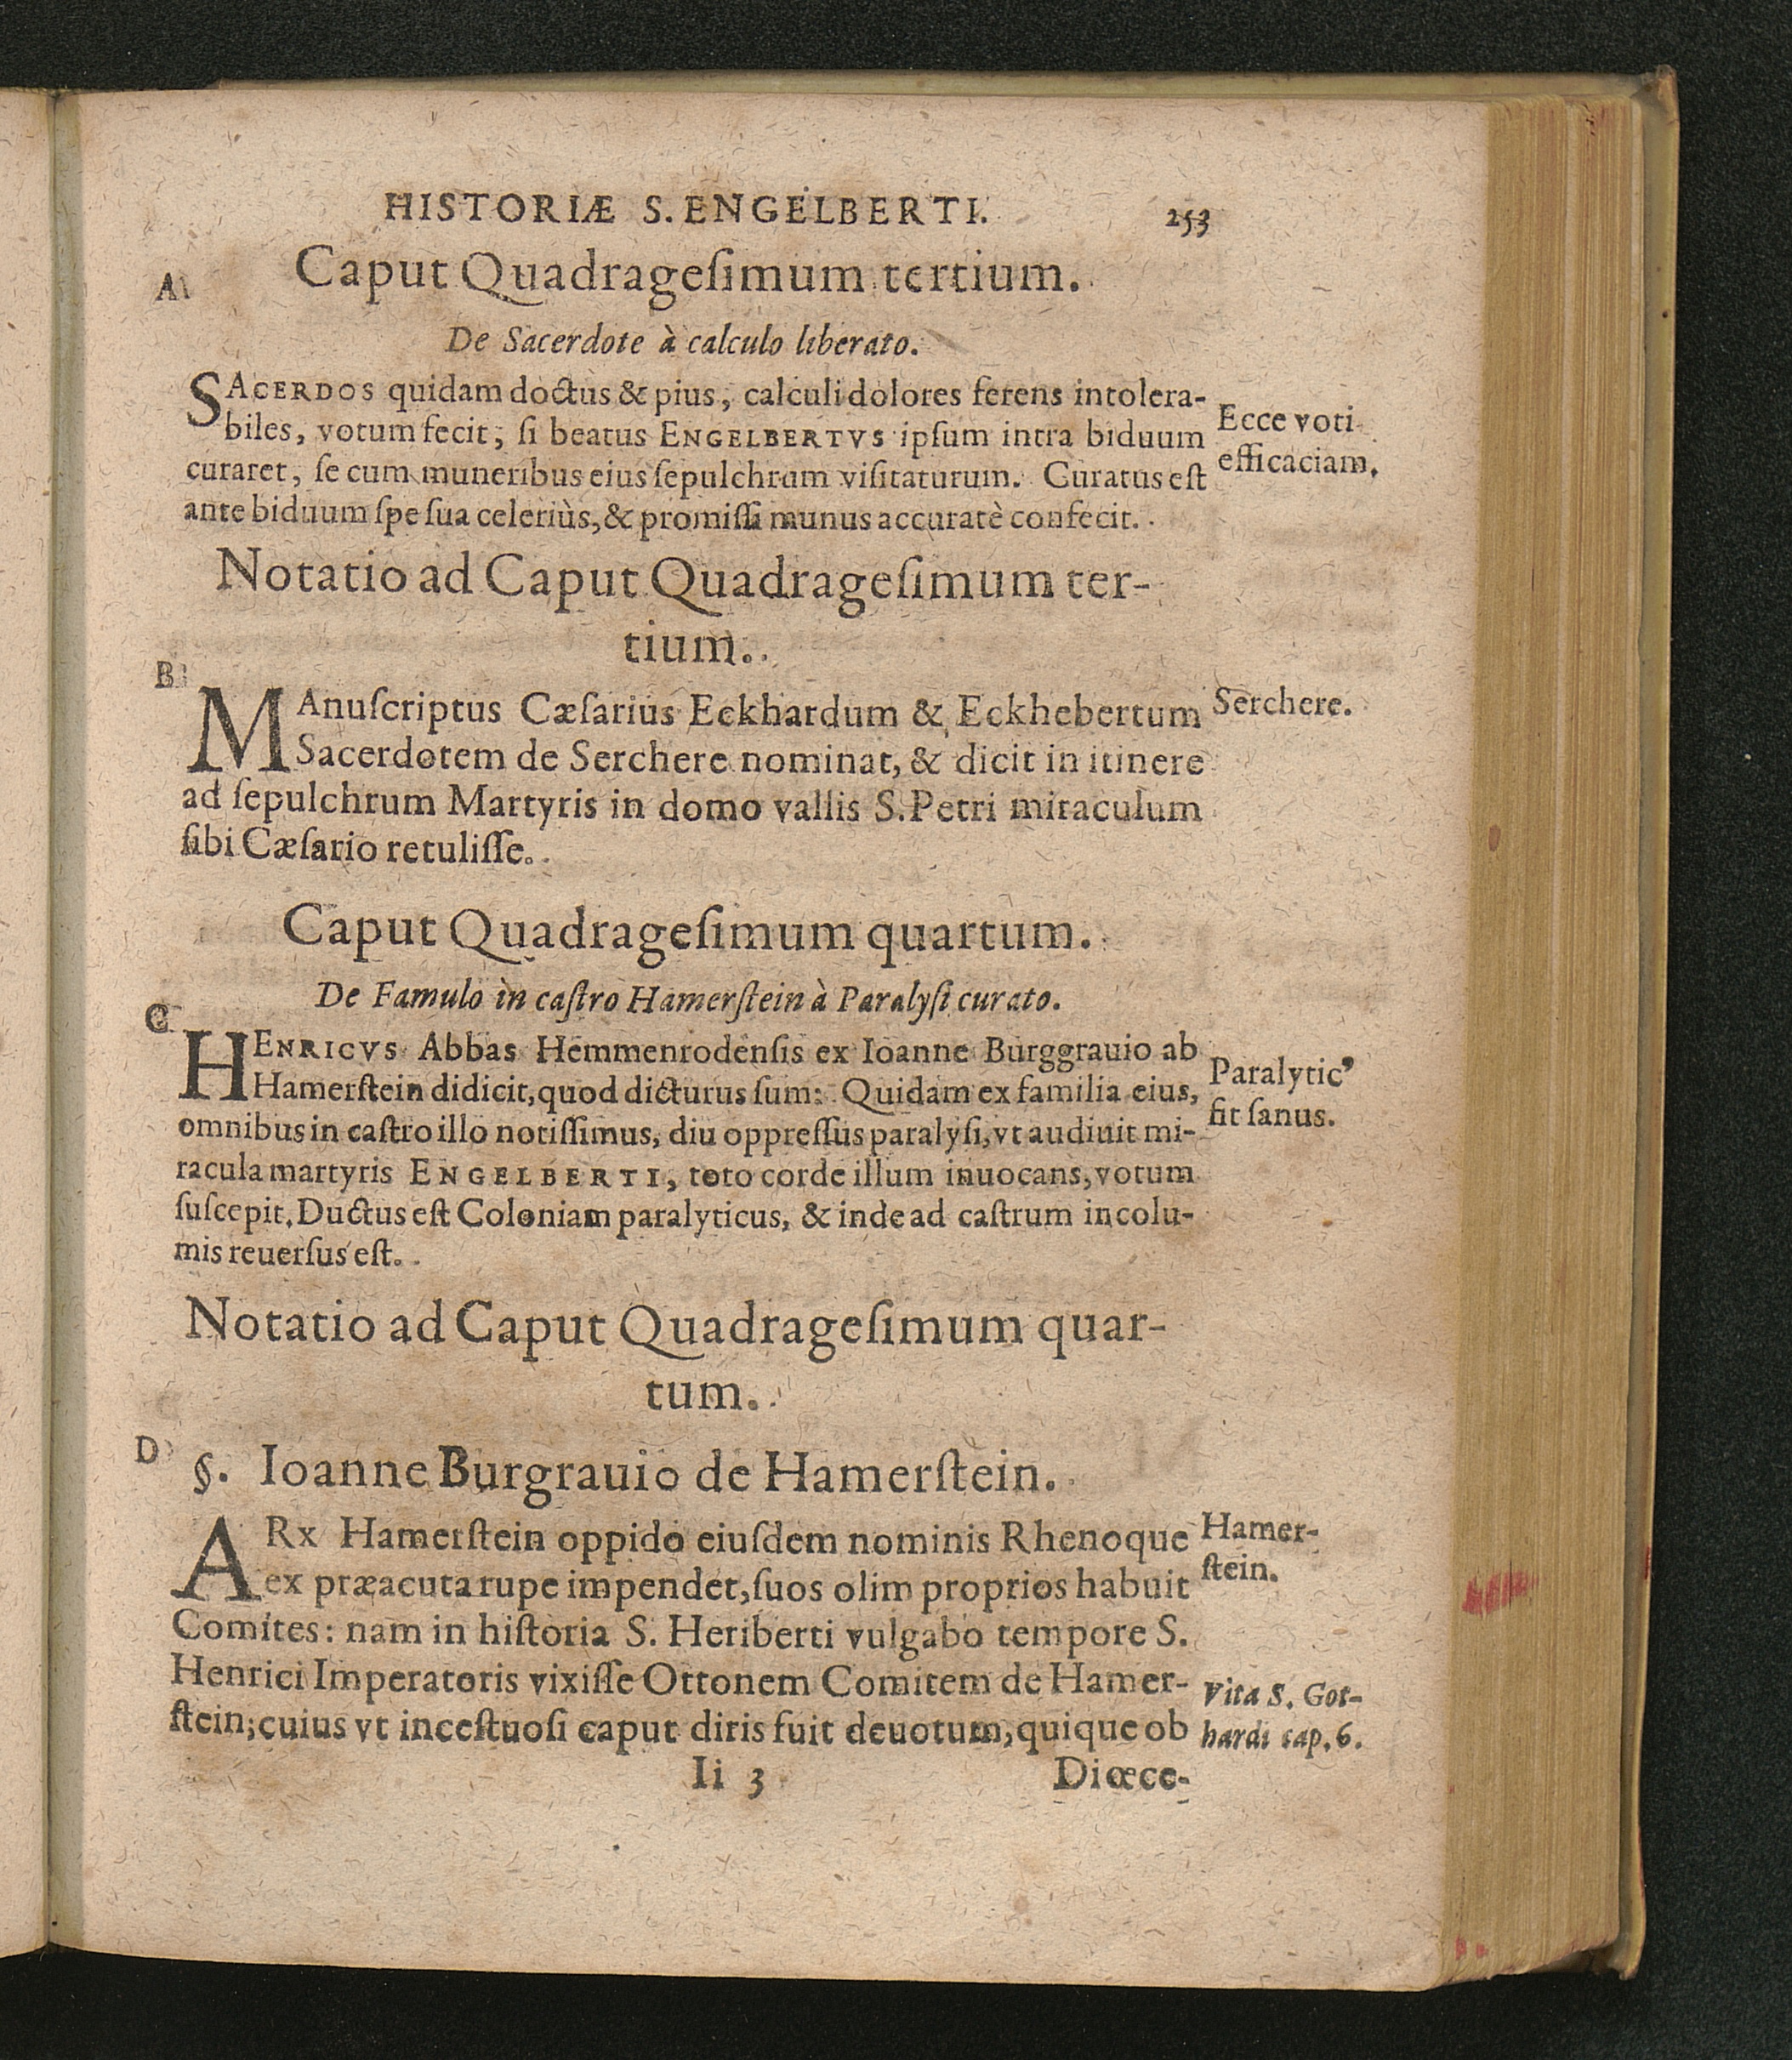 HISTORIÆ S. ENGELBERTI. 253
A
Caput Quadrageſimum tertium.
De Sacerdote à calculo liberato.
SACERDOS quidam doctus & pius, calculi dolores ferens intolera-
biles, votum fecit, ſi beatus ENGELBERTVS ipſum intra biduum
curaret, ſe cum muneribus eius ſepulchrum viſitaturum. Curatus eſt
ante biduum ſpe ſua celeriùs, & promiſſi munus accuratè confecit.
Ecce voti
efficaciam.
Notatio ad Caput Quadrageſimum ter-
tium.
B
MAnuſcriptus Cæſarius Eckhardum & Eckhebertum
Sacerdotem de Serchere nominat, & dicit in itinere
ad ſepulchrum Martyris in domo vallis S. Petri miraculum
ſibi Cæſario retuliſſe.
Serchere.
Caput Quadrageſimum quartum.
De Famulo in caſtro Hamerſtein à Paralyſi curato.
C
HENRICVS Abbas Hemmenrodenſis ex Ioanne Burggrauio ab
Hamerſtein didicit, quod dicturus ſum: Quidam ex familia eius,
omnibus in caſtro illo notiſſimus, diu oppreſſus paralyſi, vt audiuit mi-
racula martyris ENGELBERTI, toto corde illum inuocans, votum
ſuſcepit. Ductus eſt Coloniam paralyticus, & inde ad caſtrum incolu-
mis reuerſus eſt.
Paralytic’
fit ſanus.
Notatio ad Caput Quadrageſimum quar-
tum.
D
§. Ioanne Burgrauio de Hamerſtein.
ARx Hamerſtein oppido eiuſdem nominis Rhenoque
ex præacuta rupe impendet, ſuos olim proprios habuit
Comites: nam in hiſtoria S. Heriberti vulgabo tempore S.
Henrici Imperatoris vixiſſe Ottonem Comitem de Hamer-
ſtein; cuius vt inceſtuoſi caput diris fuit deuotum, quique ob
Hamer-
ſtein.
Vita S. Got-
hardi cap. 6.
Ii 3 Diœce-